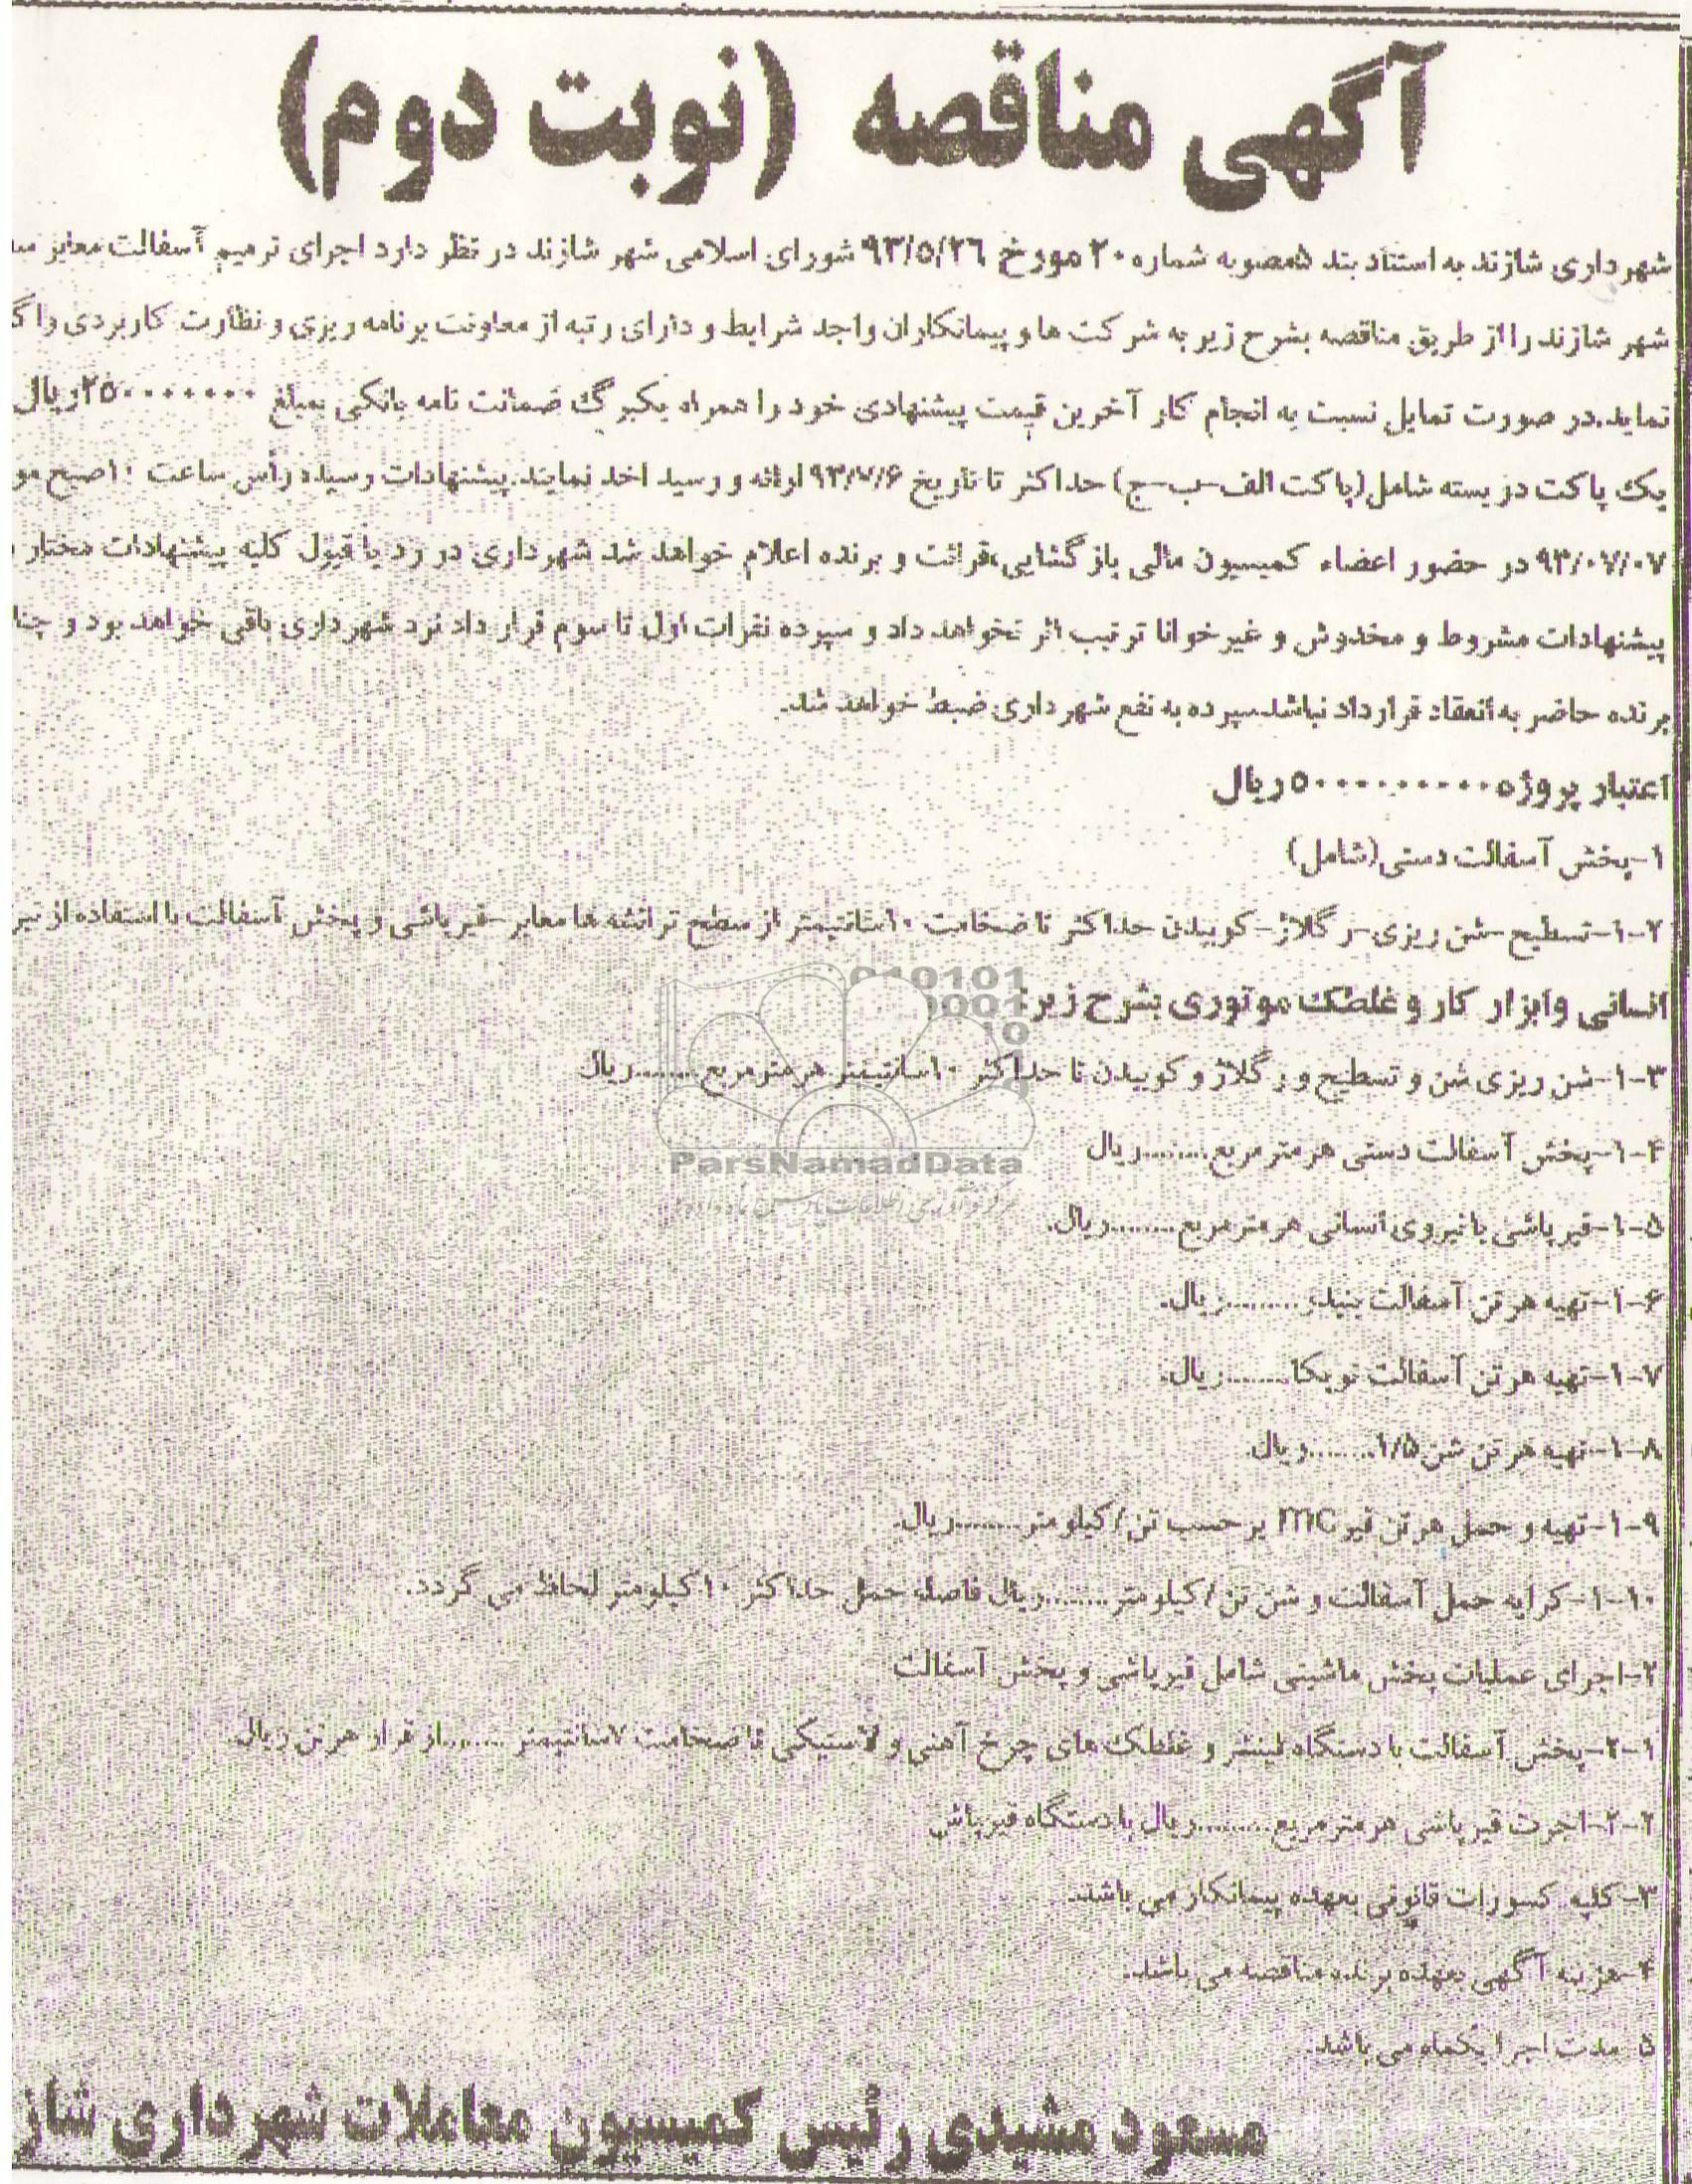 آگهی مناقصه (نوبت دوم)
شهرداری شازند به استناد بند ۵مصوبه شماره ۲۰مورخ ۹۳/۵/۲۶ شورای اسلامی شهر شازند در نظر دارد اجرای ترمیم آسفالت معابر
شهر شازند را از طریق مناقصه بشرح زیر به شرکت ها و پیمانکاران واجد شرایط و دارای رتبه از معاونت برنامه ریزی و نظارت کاربردی
نماید.در صورت تمایل نسبت به انجام کار آخرین قیمت پیشنهادی خود را همراه یکبرگ ضمانت نامه بانکی بمبلغ ۲۵۰۰۰۰۰۰۰ریال
یک پاکت در بسته شامل(پاکت الف-ب-ج) حداکثر تا تاریخ ۹۳/۷/۶ ارائه و رسید اخذ نمایند.پیشنهادات رسیده رأس ساعت ۱۰صبح
۹۳/۰۷/۰۷ در حضور اعضاء کمیسیون مالی بازگشایی،قرائت و برنده اعلام خواهد شد شهرداری در رد یا قبول کلیه پیشنهادات مختار
پیشنهادات مشروط و مخدوش و غیرخوانا ترتیب اثر نخواهد داد و سپرده نفرات اول تا سوم قرار داد نزد شهرداری باقی خواهد بود و
برنده حاضر به انعقاد قرارداد نباشد.سپرده به نفع شهرداری ضبط خواهد شد.
اعتبار پروژه ۵۰۰۰۰۰۰۰۰۰ریال
۱-پخش آسفالت دستی(شامل)
۱-۲-تسطیح-شن ریزی-رگلاژ-کوبیدن حداکثر تا ضخامت ۱۰سانتیمتر از سطح ترانشه ها معابر-قیرپاشی و پخش آسفالت با استفاده از
انسانی وابزار کار و غلطک موتوری بشرح زیر:
۱-۳-شن ریزی شن و تسطیح و رگلاژ و کوبیدن تا حداکثر ۱۰سانتیمتر هرمترمربع........ریال
۱-۴-پخش آسفالت دستی هرمترمربع........ریال
۱-۵-قیرپاشی با نیروی انسانی هرمترمربع........ریال.
۱-۶-تهیه هرتن آسفالت بیندر.........ریال.
۱-۷-تهیه هرتن آسفالت توپکا........ریال.
۱-۸-تهیه هرتن شن ۱/۵........ریال
۱-۹-تهیه و حمل هرتن قیر mc برحسب تن/کیلومتر........ریال.
۱-۱۰-کرایه حمل آسفالت و شن تن/کیلومتر........ریال فاصله حمل حداکثر ۱۰کیلومتر لحاظ می گردد.
۲-اجرای عملیات پخش ماشینی شامل قیرپاشی و پخش آسفالت
۲-۱-پخش آسفالت با دستگاه فینشر و غلطک های چرخ آهنی و لاستیکی تا ضخامت ۷سانتیمتر ........از قرار هرتن ریال.
۲-۲-اجرت قیرپاشی هرمترمربع.........ریال با دستگاه قیرپاش
۳-کلیه کسورات قانونی بعهده پیمانکار می باشد.
۴-هزینه آگهی بعهده برنده مناقصه می باشد.
۵-مدت اجرا یکماه می باشد.
مسعود مشیدی رئیس کمیسیون معاملات شهرداری
ParsNamadData